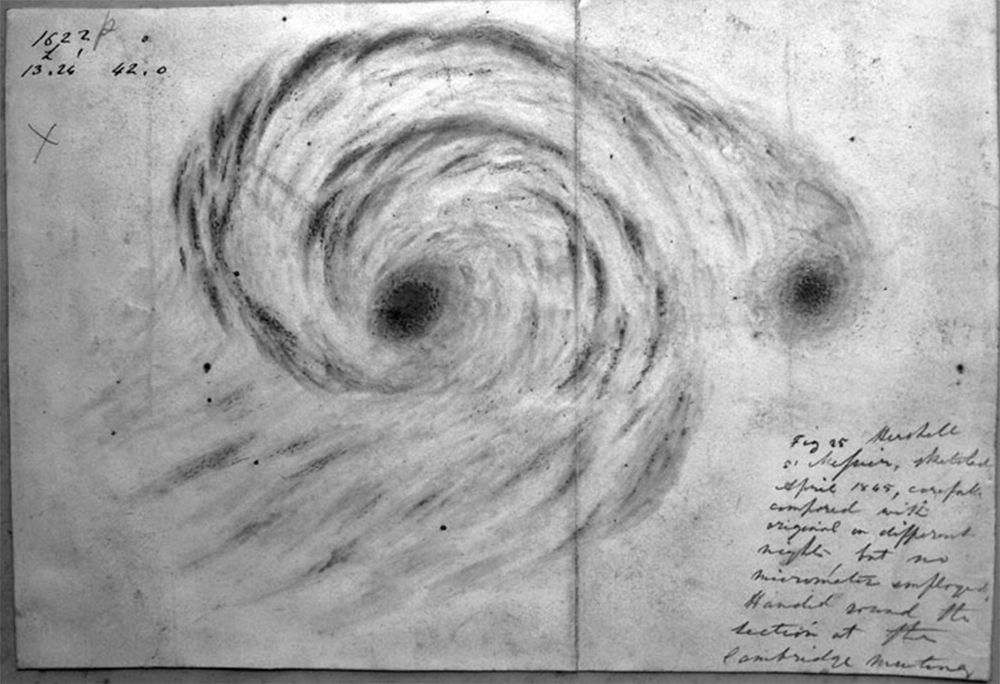 1622
13.26 42.0
Fig 25 Herschell
51 Messier, sketched
April 1845, carefully
compared with
original on different
nights but no
micrometer employed.
Handed round the
section at the
Cambridge meeting